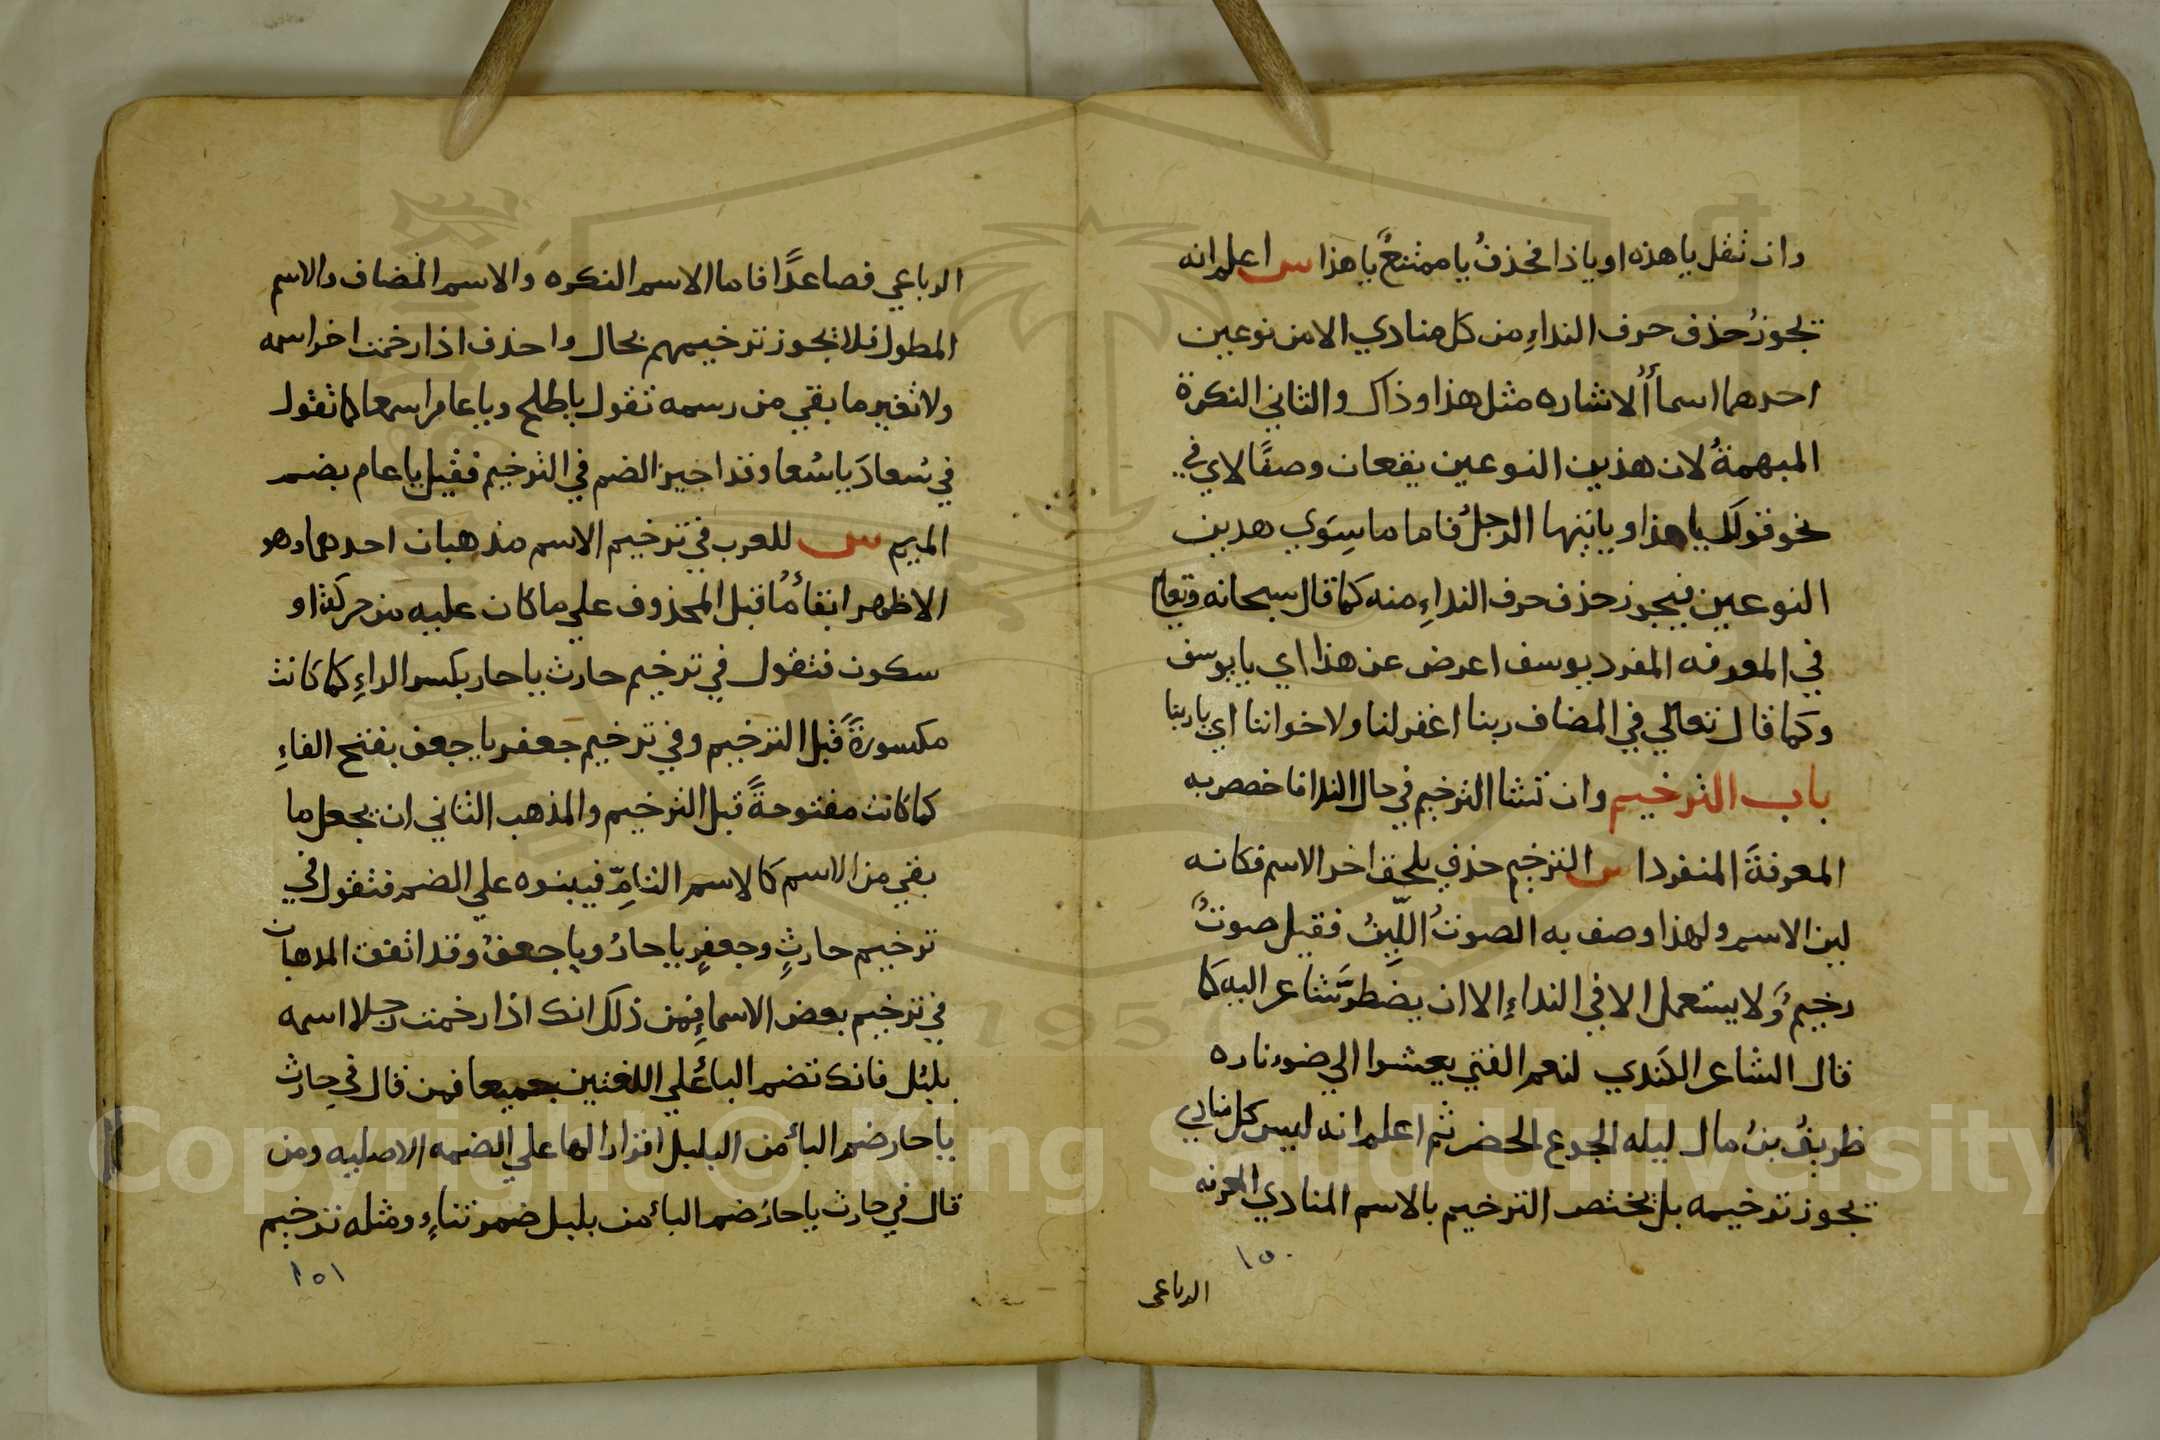 وان تقل يا هذه او يا ذا فحذفُ يا ممتنعٌ يا هذا س اعلم انه
يجوزُ حذف حرف النداءِ من كل منادي الا من نوعين
احدهما اسما ألاشاره مثل هذا وذاك والثاني النكرة
المبهمةُ لان هذين النوعين يقعان وصفًا لاي في
نحو قولك يا هذا ويا ايها الرجلُ فاما ما سِوَي هدين
النوعين فيجوز حذف حرف النداءِ منه كما قال سبحانه وتعالى
في المعرفه المفرد يوسف اعرض عن هذا اي يا يوسف
وكما قال تعالي في المضاف ربنا اغفر لنا ولاخواننا اي يا ربنا
باب الترخيم وان تشا الترخيم في حال الندا فاخصص به
المعرفةَ المنفردا س الترخيم حذف يلحق اخر الاسم فكانه
لين الاسم ولهذا وصف به الصوتُ اللّينُ فقيل صوتٌ
رخيمٌ وَلا يستعمل الا في النداءِ الا ان يضطرَّ شاعر اليه كما
قال الشاعر الكندي لنعم الفتي يعشوا الي ضوء ناره
طريفُ بنُ مال ليله الجوع الخصر ثم اعلم انه ليس كل منادي
يجوز ترخيمه بل يختص الترخيم بالاسم المنادي المعرفه
١٥٠
الرباعي
الرباعي فصاعدًا فاما الاسم النكره والاسم المضاف والاسم
المطول فلا يجوز ترخيمهم بحال واحذف اذا رخمت اخر اسمه
ولا تغير ما بقي من رسمه تقول يا طلح ويا عام اسمعا كما تقول
في سُعادَ يا سُعا وقد اجيز الضم في الترخيم فقيل يا عام بضم
الميم س للعرب في ترخيم الاسم مذهبان احدهما وهو
الاظهر ابقأ مُا قبل المحذوف علي ما كان عليه من حركة او
سكون فتقول في ترخيم حارث يا حار بكسر الراءِ كما كانت
مكسورةً قبل الترخيم وفي ترخيم جعفر يا جعف بفتح الفاءِ
كما كانت مفتوحةً قبل الترخيم والمذهب الثاني ان يجعل ما
بقي من الاسم كالاسم التامِّ فيبنوه علي الضم فتقول في
ترخيم حارثٍ وجعفرٍ يا حارُ ويا جعفُ وقد اتفق المدهبان
في ترخيم بعض الاسماءِ فمن ذلك انك اذا رخمت رجلا اسمه
بلبُل فانك تضم البأ علي اللغتين جميعا فمن قال في حارث
يا حار ضم البأ من البلبل اقرارا لها علي الضمه الاصليه ومن
قال في حارث يا حارُ ضم البأ من بلبل ضم بناءٍ ومثله ترخيم
١٥١
1957
Copyright © King Saud University